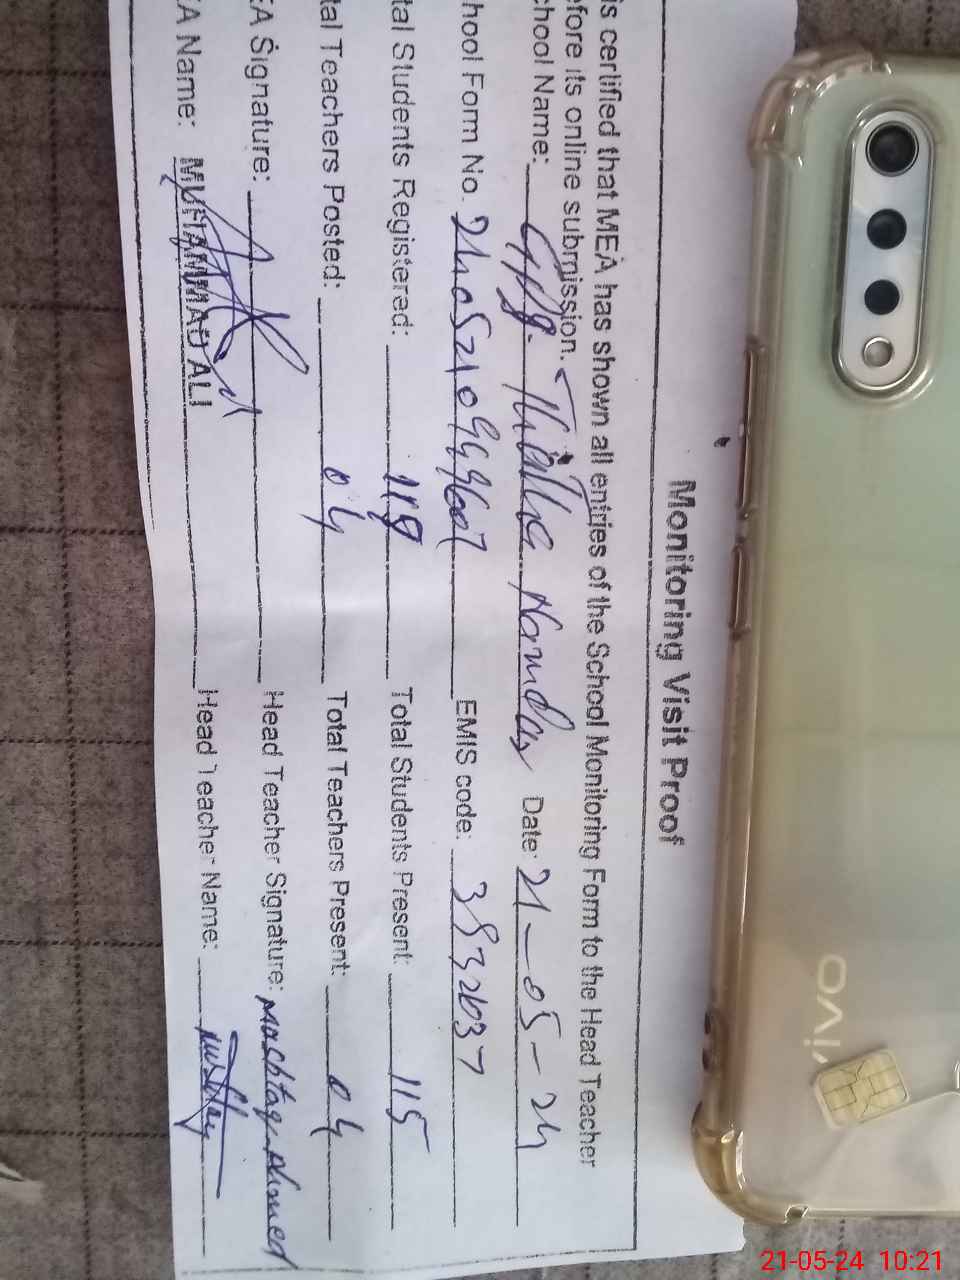 Monitoring Visit Proof
is certified that MEA has shown all entries of the School Monitoring Form to the Head Teacher
efore its online submission.
chool Name: Date: 21-05-24
hool Form No. EMIS code: 3832037
tal Students Registered: 119 Total Students Present: 115
tal Teachers Posted: 04 Total Teachers Present: 04
EA Signature: Head Teacher Signature: Mochtaq Ahmed
EA Name: MUHAMMAD ALI Head Teacher Name:
vivo
21-05-24 10:21